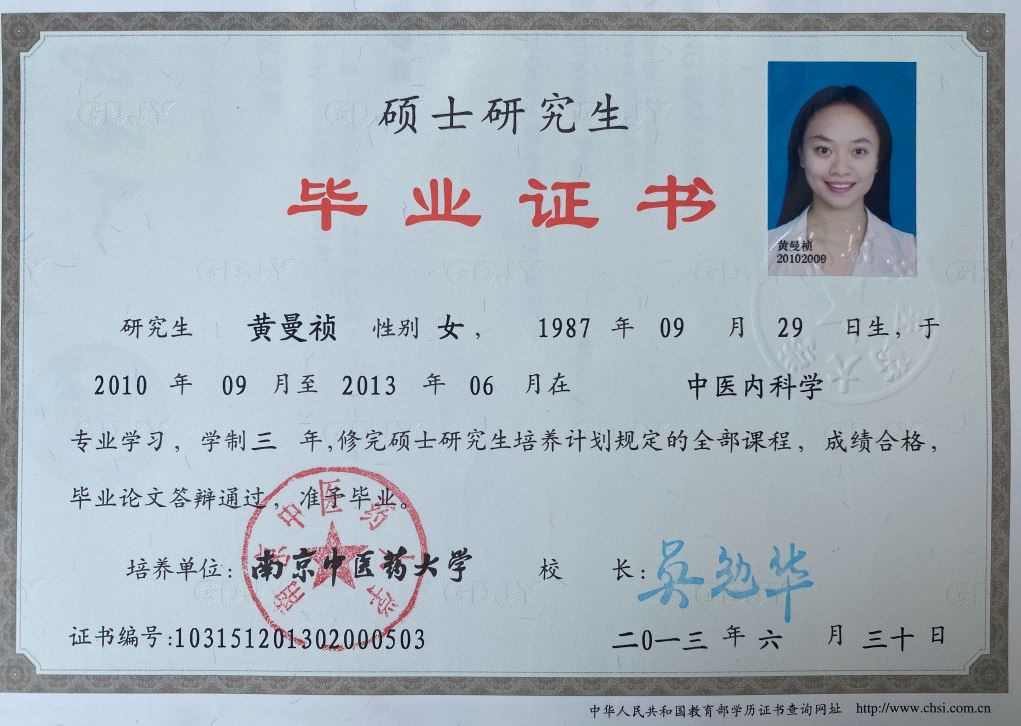 硕士研究生
毕业证书
黄曼祯
20102009
研究生 黄曼祯 性别 女, 1987 年 09 月 29 日生, 于
2010 年 09 月至 2013 年 06 月在 中医内科学
专业学习, 学制 三 年, 修完硕士研究生培养计划规定的全部课程, 成绩合格,
毕业论文答辩通过, 准予毕业。
培养单位: 南京中医药大学 校 长: 吴勉华
南京中医药大学
证书编号:103151201302000503 二〇一三 年 六 月 三十 日
中华人民共和国教育部学历证书查询网址 http://www.chsi.com.cn